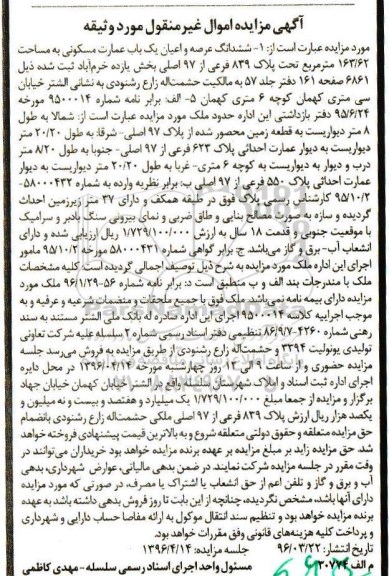 آگهی مزایده اموال غیرمنقول مورد وثیقه
مورد مزایده عبارت است از: ۱- ششدانگ عرصه و اعیان یک باب عمارت مسکونی به مساحت
۱۶۳/۶۲ مترمربع تحت پلاک ۸۳۹ فرعی از ۹۷ اصلی بخش یازده خرم‌آباد ثبت شده ذیل
۶۸۶۱ صفحه ۱۶۱ دفتر جلد ۵۷ به مالکیت حشمت‌اله زارع رشنودی به نشانی الشتر خیابان
سی متری کهمان کوچه ۶ متری کهمان ۵- الف: برابر نامه شماره ۹۵۰۰۰۱۴ مورخه
۹۵/۶/۲۴ دفتر بازداشتی این اداره حدود ملک مورد مزایده عبارت است از: شمالا به طول
۸ متر دیواریست به قطعه زمین محصور شده از پلاک ۹۷ اصلی- شرقا: به طول ۲۰/۲۰ متر
دیواریست به دیوار عمارت احداثی پلاک ۶۲۳ فرعی از ۹۷ اصلی- جنوبا به طول ۸/۲۰ متر
درب و دیوار به دیواریست به کوچه ۶ متری- غربا به طول ۲۰/۲۰ متر دیواریست به دیوار
عمارت احداثی پلاک ۵۵۰ فرعی از ۹۷ اصلی ب: برابر نظریه وارده به شماره ۵۸۰۰۰۴۳۲-
۹۵/۱۰/۲ کارشناس رسمی پلاک فوق در طبقه همکف و دارای ۳۷ متر زیرزمین احداث
گردیده و سازه به صورت مصالح بنایی و طاق ضربی و نمای بیرونی سنگ بادبر و سرامیک
با موقعیت جنوبی و قدمت ۱۸ سال به ارزش ۱/۷۲۹/۱۰۰/۰۰۰ ریال ارزیابی شده و دارای
انشعاب آب- برق و گاز می‌باشد. ج: برابر گواهی شماره ۵۸۰۰۰۴۳۱ مورخه ۹۵/۱۰/۲ مامور
اجرای این اداره ملک مورد مزایده به شرح ذیل توصیف اجمالی گردیده است: کلیه مشخصات
ملک با مندرجات بند الف و ب منطبق است د: برابر نامه شماره ۵۶-۹۶/۱/۲۹ ملک مورد
مزایده دارای بیمه نامه نمی‌باشد. ملک فوق با جمیع ملحقات و منضمات شرعیه و عرفیه و به
موجب اجراییه کلاسه ۹۵۰۰۰۱۴ اجرای این اداره صادره له بانک ملی الشتر مستند به سند
رهنی شماره ۴۲۶۰-۸۶/۹/۷ تنظیمی دفتر اسناد رسمی شماره ۲ سلسله علیه شرکت تعاونی
تولیدی یونولیت ۳۳۹۴ و حشمت‌اله زارع رشنودی از طریق مزایده به فروش می‌رسد جلسه
مزایده حضوری و از ساعت ۹ الی ۱۲ روز چهارشنبه مورخه ۱۳۹۶/۰۴/۱۴ در محل دایره
اجرای اداره ثبت اسناد و املاک شهرستان سلسله واقع در الشتر خیابان کهمان خیابان جهاد
برگزار و مزایده از جمعا مبلغ ۱/۷۲۹/۱۰۰/۰۰۰ یک میلیارد و هفتصد و بیست و نه میلیون و
یکصد هزار ریال ارزش پلاک ۸۳۹ فرعی از ۹۷ اصلی ملکی حشمت‌اله زارع رشنودی بانضمام
حق مزایده متعلقه و حقوق دولتی متعلقه شروع و به بالاترین قیمت پیشنهادی فروخته خواهد
شد. حق مزایده زاید بر مبلغ مزایده بر عهده برنده مزایده خواهد بود خریداران می‌توانند در
وقت مقرر در جلسه مزایده شرکت نمایند. در ضمن بدهی مالیاتی، عوارض شهرداری، بدهی
آب و برق و گاز و تلفن اعم از حق انشعاب یا اشتراک یا مصرف، در صورتی که مورد مزایده
دارای آنها باشد، مشخص نگردیده، چنانچه از این بابت تا روز فروش بدهی داشته باشد به عهده
برنده مزایده خواهد بود و تنظیم سند انتقال موکول به ارائه مفاصا حساب دارایی و شهرداری
و پرداخت کلیه هزینه‌های قانونی وفق مقررات خواهد بود.
تاریخ انتشار: ۹۶/۰۳/۲۲ جلسه مزایده: ۱۳۹۶/۴/۱۴
م الف ۳۰۷۷۴ مسئول واحد اجرای اسناد رسمی سلسله - مهدی کاظمی